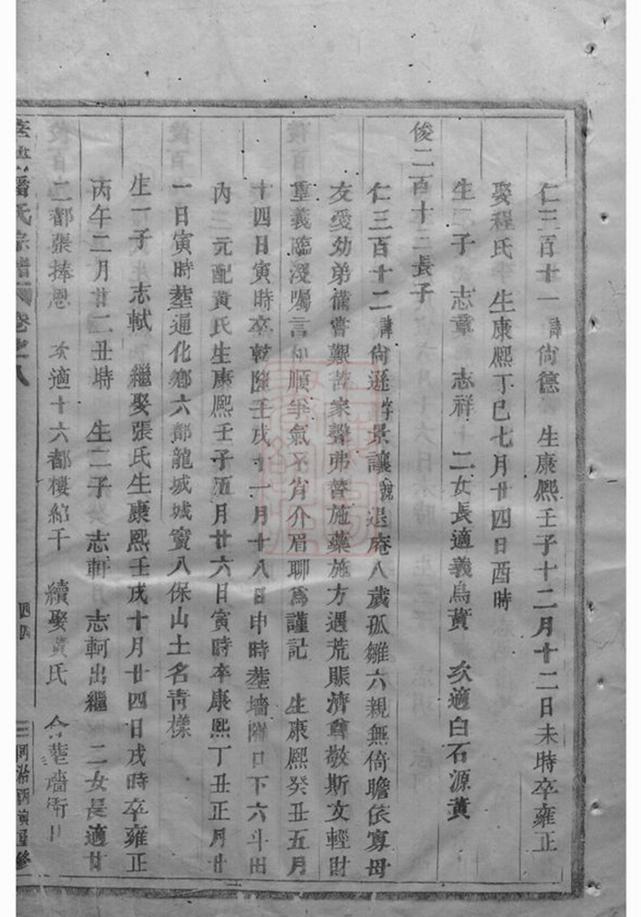 仁三百十一諱尚德 生康熙壬子十二月十二日未時卒雍正
娶程氏 生康熙丁巳七月廿四日酉時
生二子 志羣 志祥 二女長適義烏黃 次適白石源黃
俊二百十二長子
仁三百十二諱尚遜字景讓號退庵八歲孤雛六親無倚瞻依寡母
友愛幼弟備嘗艱苦家聲弗替施藥施方遇荒賑濟尊敬斯文輕財
重義臨沒囑言和順爭氣不肖介眉聊為謹記 生康熙癸丑五月
十四日寅時卒乾隆壬戌十一月十八日申時塟墻隖口下六斗田
內 元配黃氏生康熙壬子五月廿六日寅時卒康熙丁丑正月廿
一日寅時塟通化鄉六都龍城城竇八保山土名青樣
生一子 志軾 繼娶張氏生康熙壬戌十月廿四日戌時卒雍正
丙午二月廿二丑時 生二子 志軒 志軻出繼 二女長適廿
二都張捧恩 次適十六都樓紹干 續娶黃氏 合塟墻衕口
潘氏宗譜 卷之八